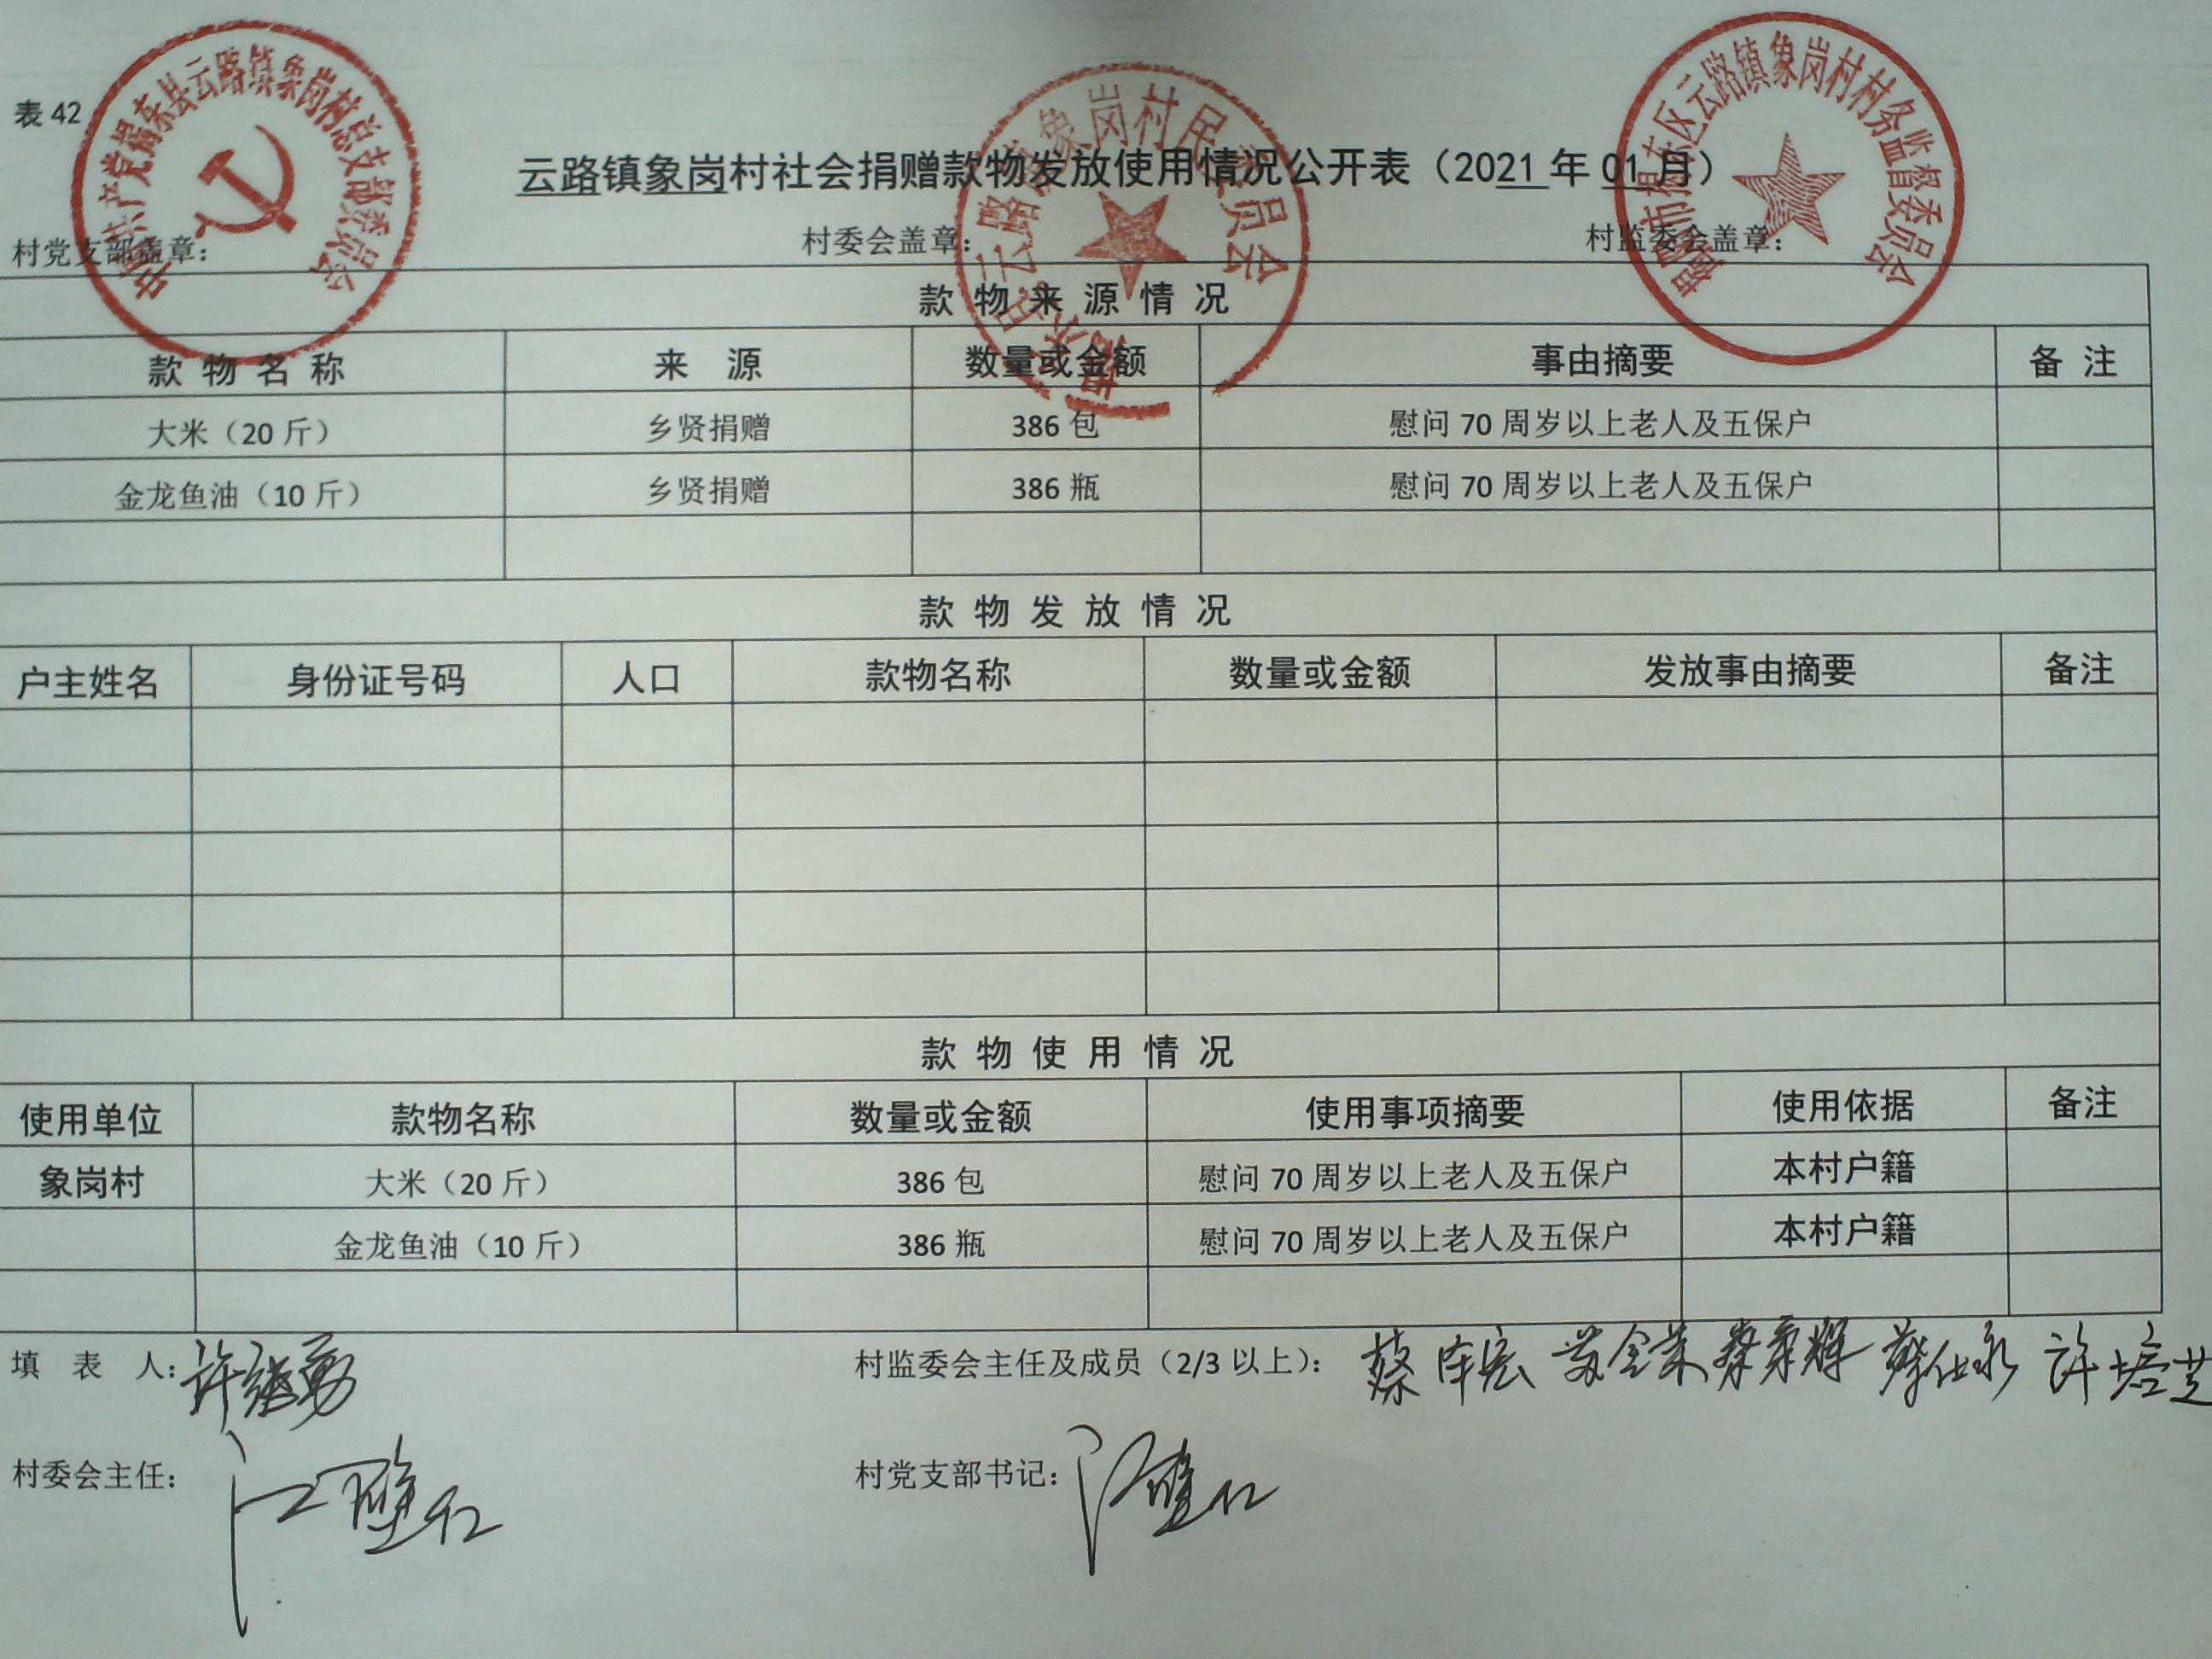 表 42
中国共产党揭东县云路镇象岗村总支部委员会
揭东县云路镇象岗村民委员会
揭阳市揭东区云路镇象岗村村务监督委员会
云路镇象岗村社会捐赠款物发放使用情况公开表（2021 年 01 月）
村党支部盖章： 村委会盖章： 村监委会盖章：
款 物 来 源 情 况
款 物 名 称 来 源 数量或金额 事由摘要 备 注
大米（20 斤） 乡贤捐赠 386 包 慰问 70 周岁以上老人及五保户
金龙鱼油（10 斤） 乡贤捐赠 386 瓶 慰问 70 周岁以上老人及五保户
款 物 发 放 情 况
户主姓名 身份证号码 人口 款物名称 数量或金额 发放事由摘要 备注
款 物 使 用 情 况
使用单位 款物名称 数量或金额 使用事项摘要 使用依据 备注
象岗村 大米（20 斤） 386 包 慰问 70 周岁以上老人及五保户 本村户籍
金龙鱼油（10 斤） 386 瓶 慰问 70 周岁以上老人及五保户 本村户籍
填 表 人： 村监委会主任及成员（2/3 以上）：
村委会主任： 村党支部书记：